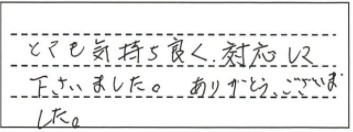 とても気持ち良く、対応して
下さいました。ありがとうございま
した。